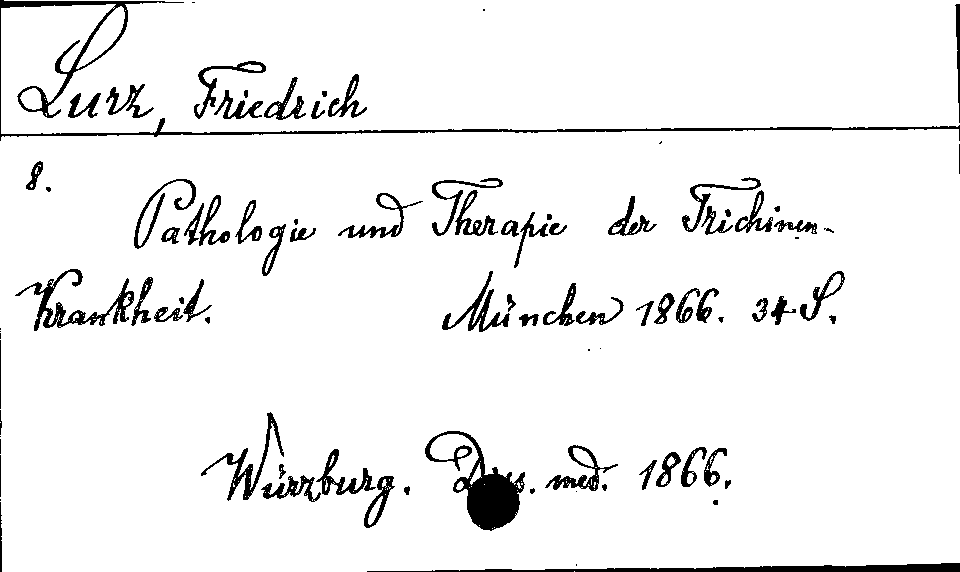 Lurz, Friedrich
8.
Pathologie und Therapie der Trichinen-
Krankheit. München 1866. 34 S.
Würzburg. Diss. med. 1866.